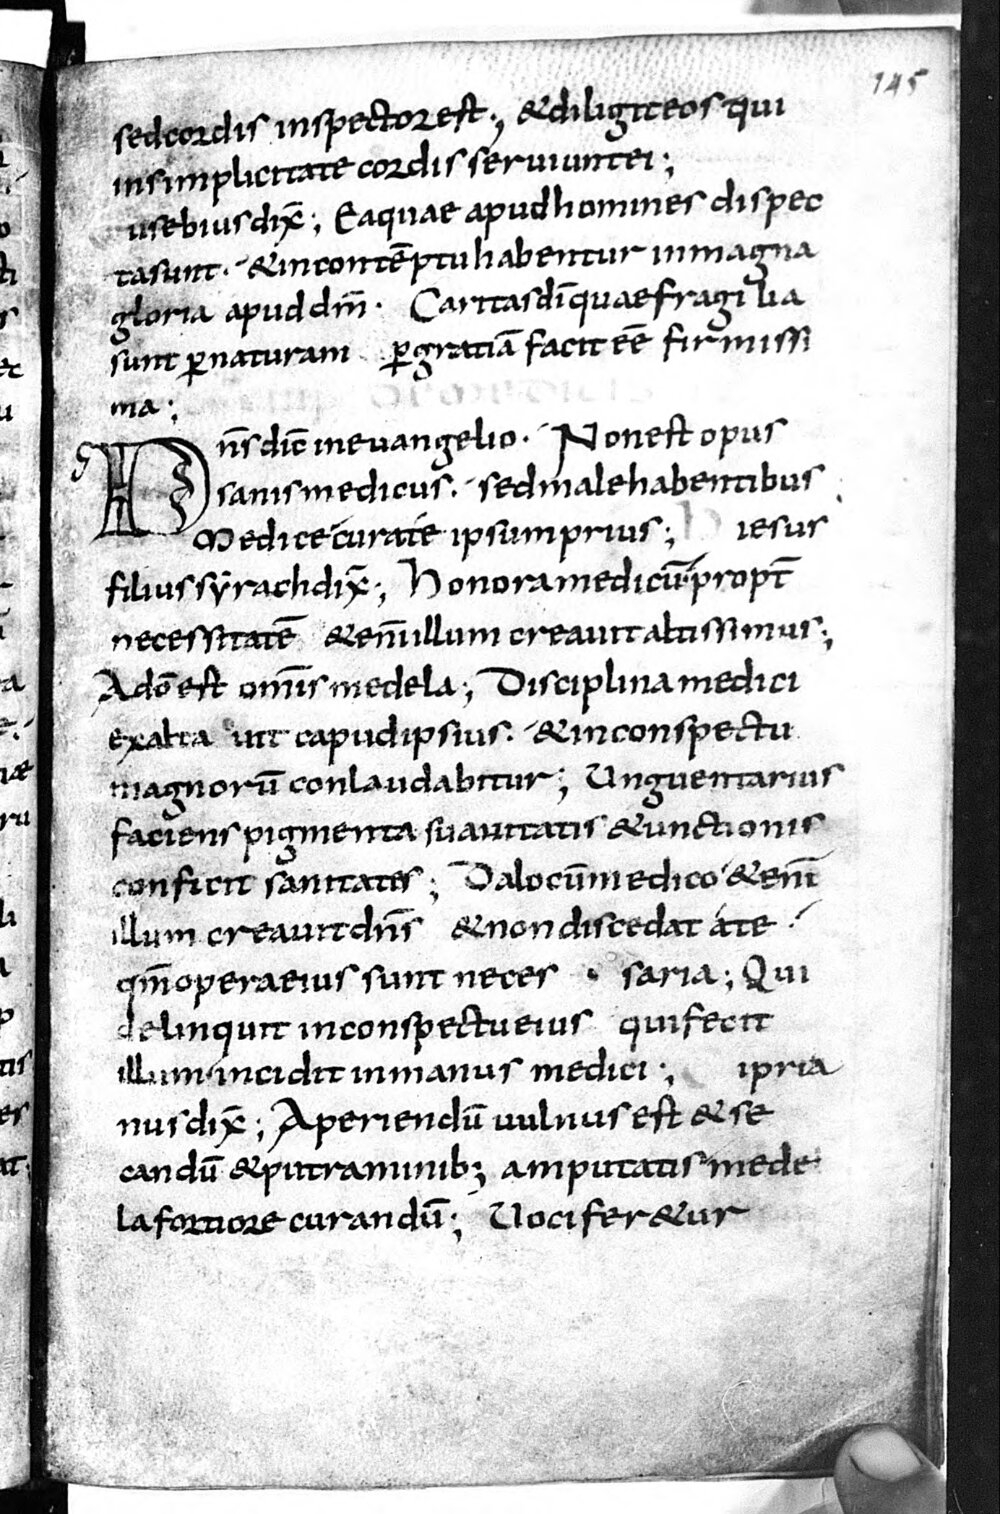 145
sed cordis inspector est ; & diligit eos qui
in simplicitate cordis seruiunt ei ;
usebius dix̄ ; Ea quae apud homines dispec
ta sunt · & in contēptu habentur in magna
gloria apud dm̄ · Caritas dī quae fragilia
sunt ꝑ naturam ꝑ gratiā facit eē firmissi
ma ;
Dn̄s dic̄ in euangelio · Non est opus
sanis medicus · sed male habentibus
Medice curate ipsum prius ; iesus
filius syrach dix̄ ; Honora medicū propt̄
necessitatē & enī illum creauit altissimus ;
A dō est omīs medela ; Disciplina medici
exaltauit capud ipsius · & in conspectu
magnorū conlaudabitur ; Unguentarius
faciens pigmenta suauitatis & unctionis
conficit sanitates ; Da locū medico & enī
illum creauit dn̄s & non discedat a te
qm̄ opera eius sunt neces saria ; Qui
delinquit in conspectu eius qui fecit
illum incidit in manus medici ; ipria
nus dix̄ ; Aperiendū uulnus est & se
candū & putraminib; amputatis mede
la fortiore curandū ; Uocifer&ur